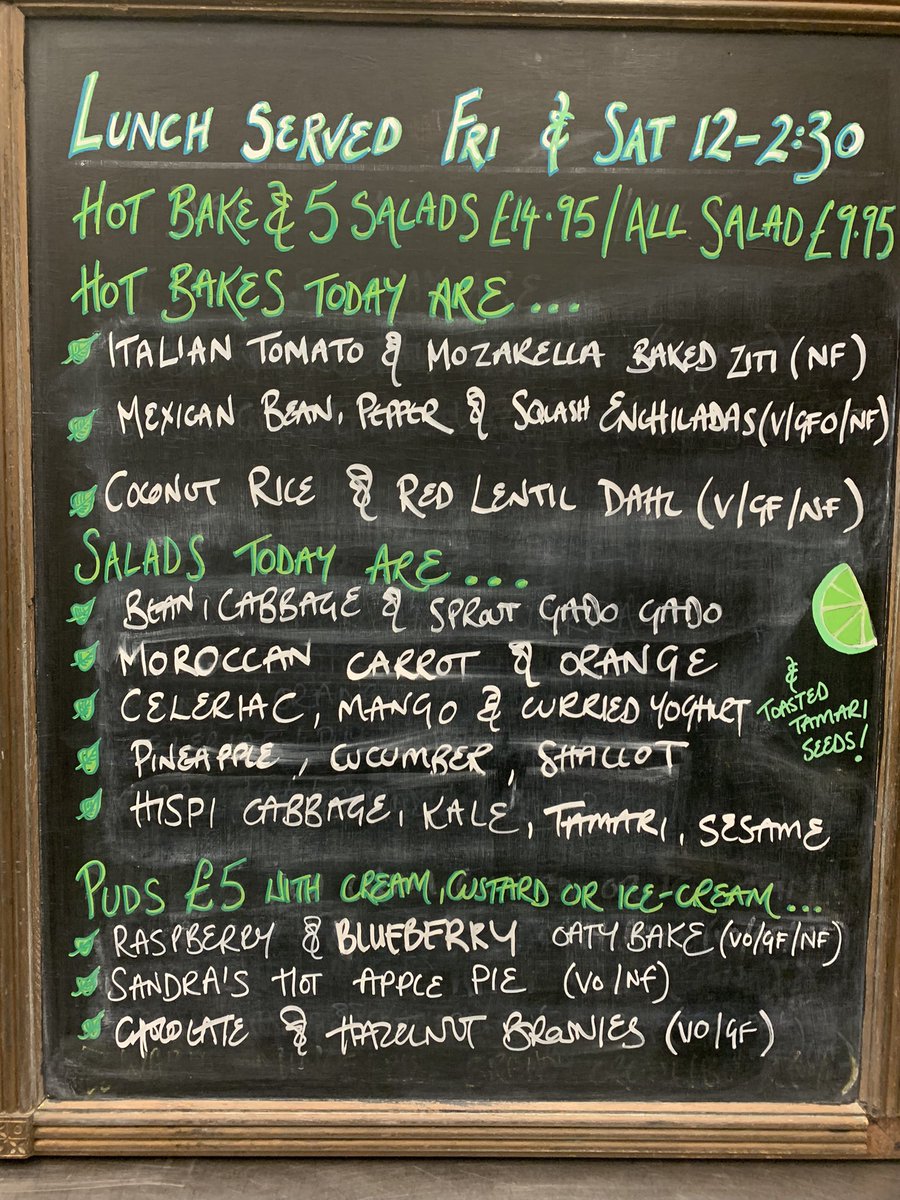 LUNCH SERVED FRI & SAT 12-2:30
HOT BAKE & 5 SALADS £14.95/ALL SALAD £9.95
HOT BAKES TODAY ARE...
ITALIAN TOMATO & MOZARELLA BAKED ZITI (NF)
MEXICAN BEAN, PEPPER & SQUASH ENCHILADAS (V/GFO/NF)
COCONUT RICE & RED LENTIL DAHL (V/GF/NF)
SALADS TODAY ARE...
BEAN, CABBAGE & SPROUT GADO GADO
MOROCCAN CARROT & ORANGE
CELERIAC, MANGO & CURRIED YOGHURT
PINEAPPLE, CUCUMBER, SHALLOT
HISPI CABBAGE, KALE, TAMARI, SESAME
& TOASTED
TAMARI
SEEDS!
PUDS £5 WITH CREAM, CUSTARD OR ICE-CREAM...
RASPBERRY & BLUEBERRY OATY BAKE (VO/GF/NF)
SANDRA'S HOT APPLE PIE (VO/NF)
CHOCOLATE & HAZELNUT BROWNIES (VO/GF)